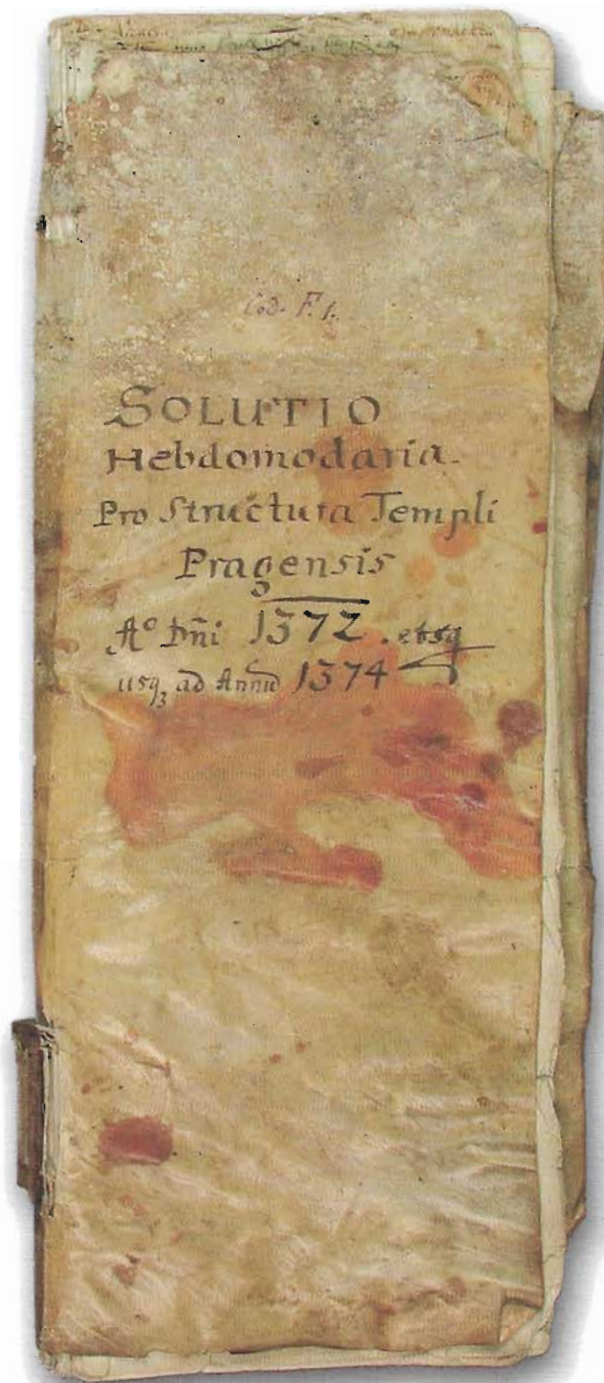 Cod. F. 1.
SOLUTIO
Hebdomodaria.
Pro Structura Templi
Pragensis
Aº Dñi 1372. et sq
usqꝫ ad Annũ 1374